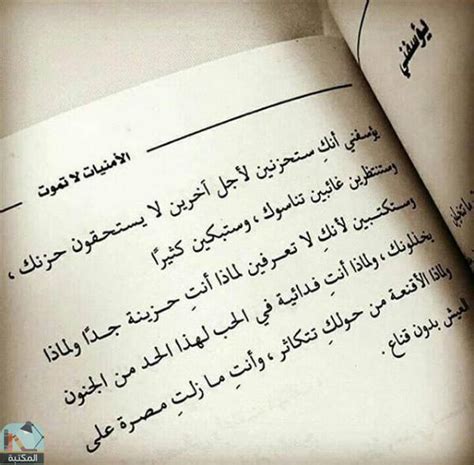 يؤسفني
الأمنيات لا تموت
يؤسفني أنكِ ستحزنين لأجل آخرين لا يستحقون حزنك ،
وستنتظرين غائبين تناسوك ، وستبكين كثيرًا
وستكتبين لأنكِ لا تعرفين لماذا أنتِ حزينة جدًا ولماذا
يخذلونك ، ولماذا أنتِ فدائية في الحب لهذا الحد من الجنون
ولماذا الأقنعة من حولكِ تتكاثر ، وأنتِ ما زلتِ مصرة على
العيش بدون قناع .
المكتبة